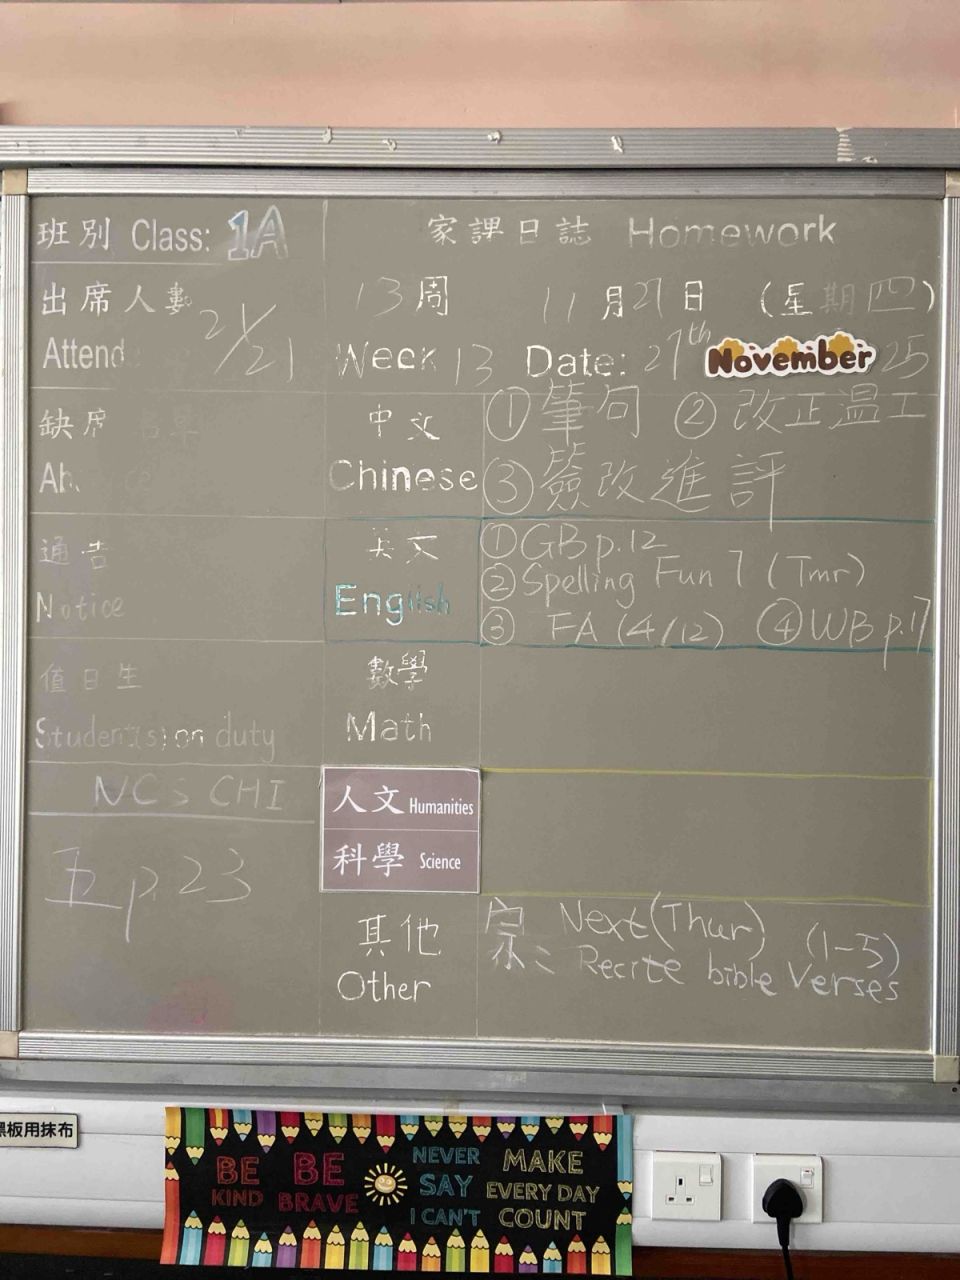 班別 Class: 1A
家課日誌 Homework
出席人數
Attend 21/21
13周 11月27日 (星期四)
Week 13 Date: 27th November 25
缺席
Ab
中文
Chinese
①筆句 ②改正温工
③簽改進評
通告
Notice
英文
English
①GB p.12
②Spelling Fun 7 (Tmr)
③ FA (4/12) ④WB p.17
值日生
Student(s) on duty
數學
Math
NCS CHI
五 p.23
人文 Humanities
科學 Science
其他
Other
宗: Next (Thur) (1-5)
Recite bible Verses
黑板用抹布
BE KIND
BE BRAVE
NEVER SAY I CAN'T
MAKE EVERY DAY COUNT